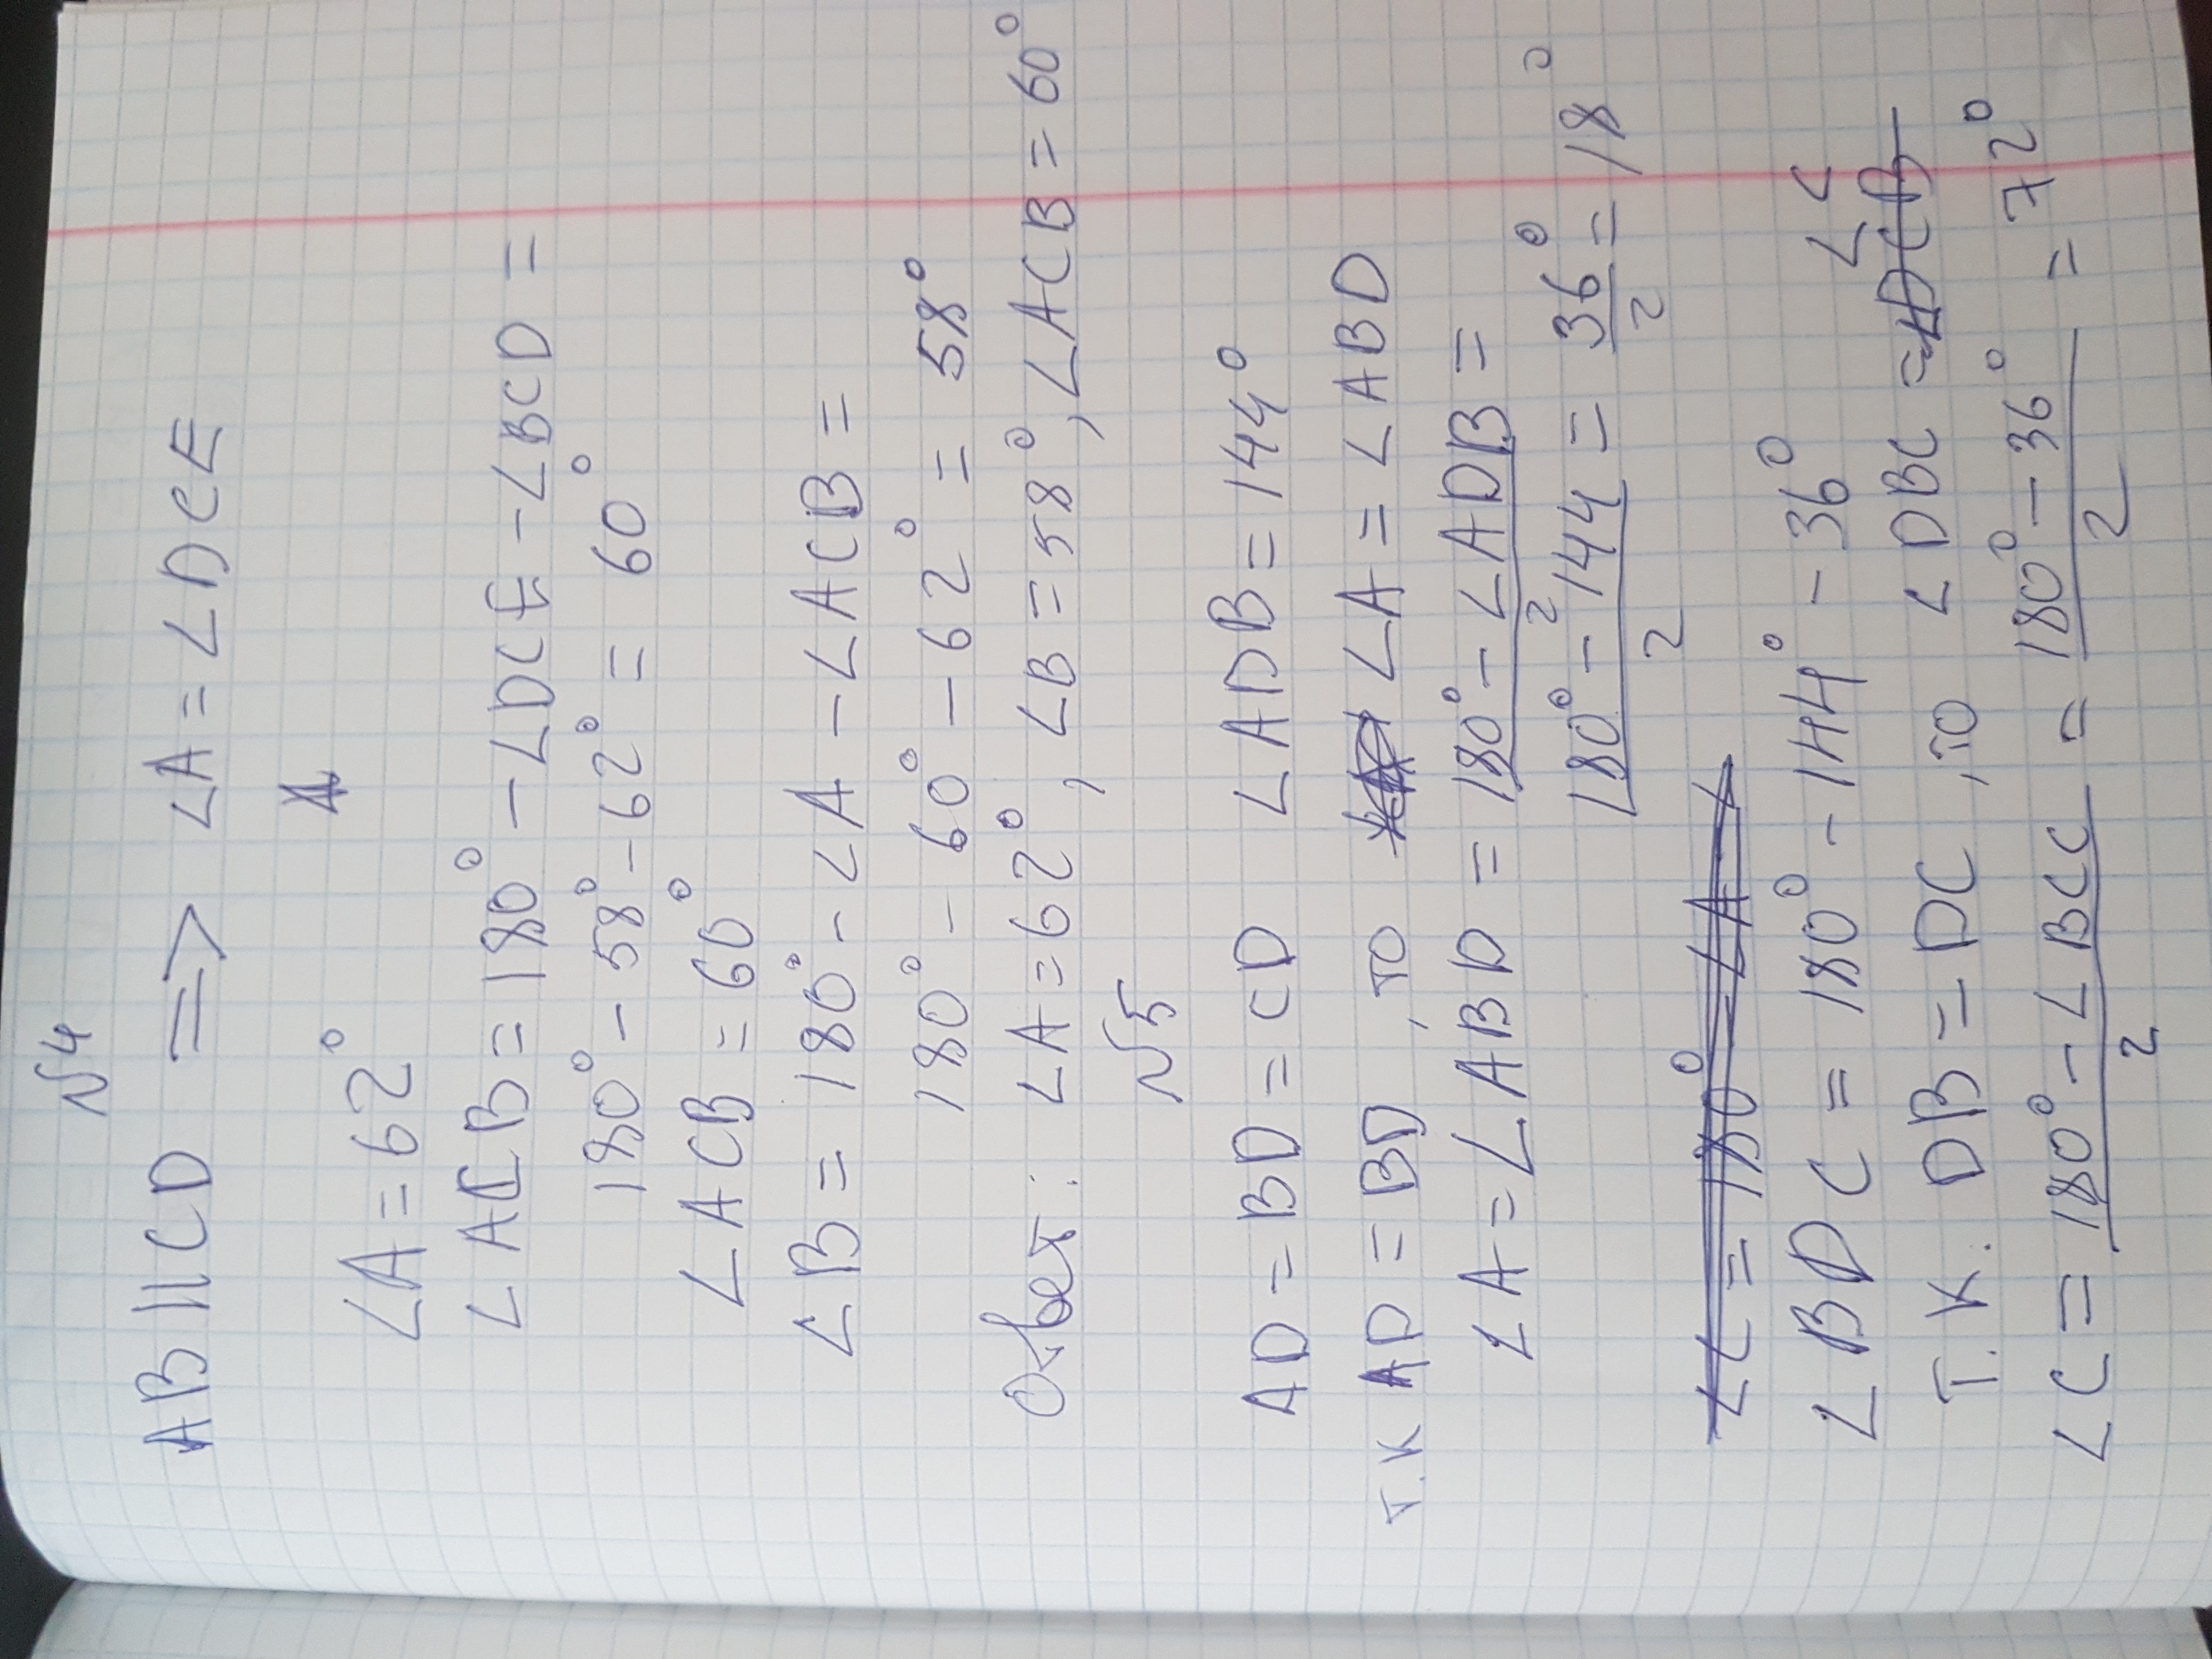 №4
AB || CD => ∠A = ∠DCE
∠A = 62°
∠ACB = 180° - ∠DCE - ∠BCD =
180° - 58° - 62° = 60°
∠ACB = 60°
∠B = 180° - ∠A - ∠ACB =
180° - 60° - 62° = 58°
Ответ: ∠A = 62°, ∠B = 58°, ∠ACB = 60°
№5
AD = BD = CD ∠ADB = 144°
Т.К AD = BD, то ∠A = ∠ABD
∠A = ∠ABD = (180° - ∠ADB)/2 =
(180° - 144)/2 = 36°/2 = 18°
∠C = 180° - ∠A
∠BDC = 180° - 144° - 36°
Т.К. DB = DC, то ∠DBC = ∠DCB ∠C
∠C = (180° - ∠BCC)/2 = (180° - 36°)/2 = 72°